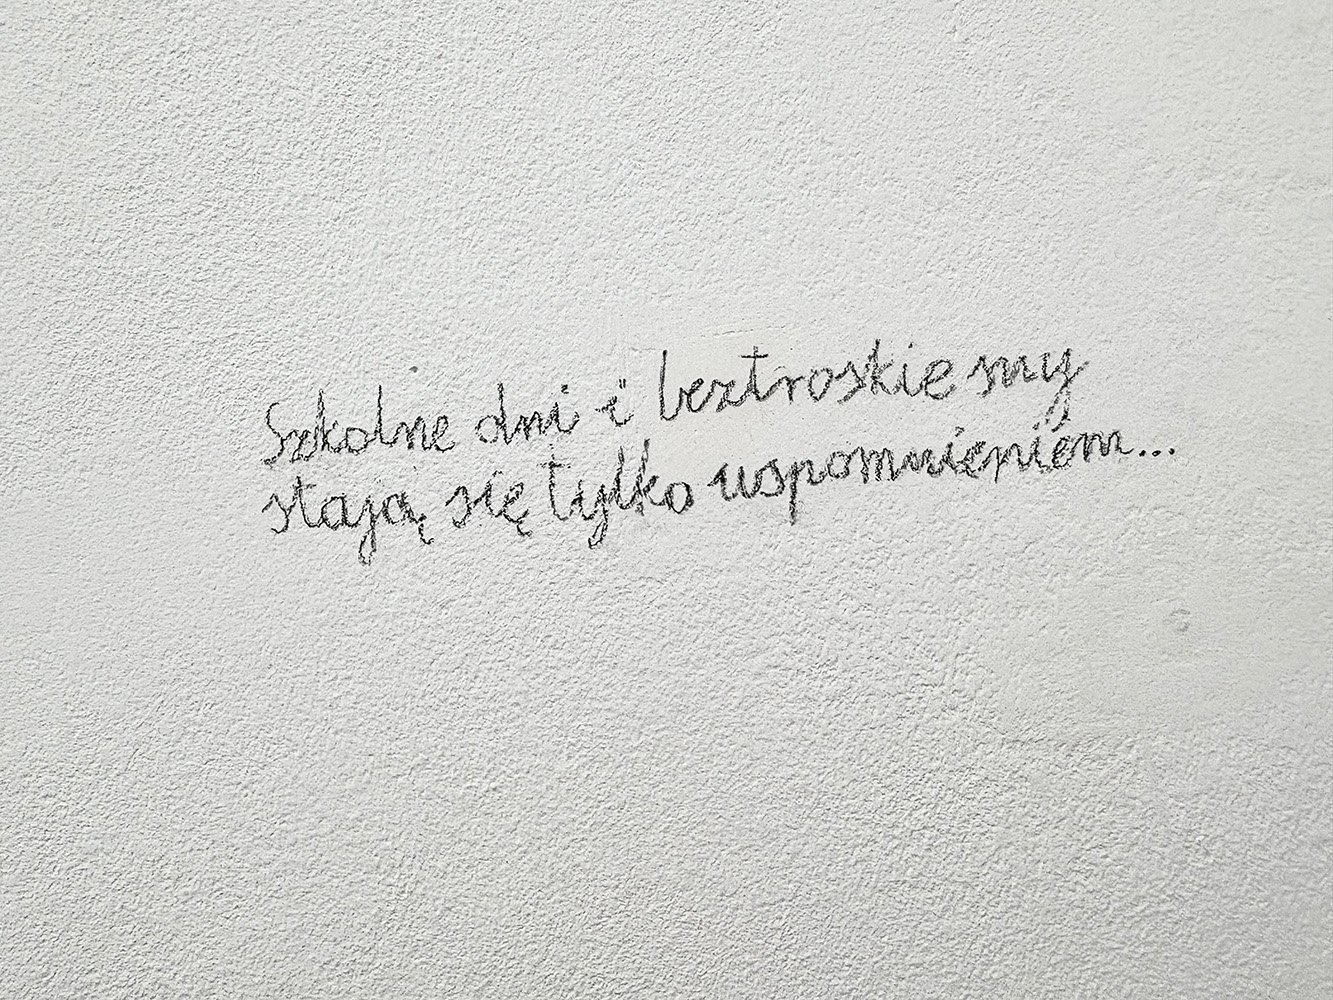 Szkolne dni i beztroskie my
stają się tylko wspomnieniem...